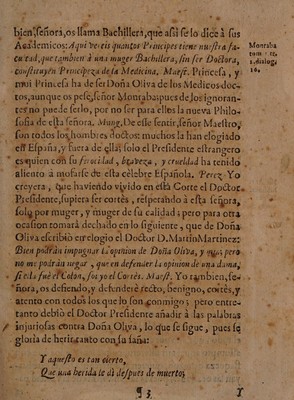 bien, señora, os llama Bachillera, que assi se lo dice à sus
Academicos: Aqui vereis quantos Principes tiene nuestra fa-
cultad, que tambien à una muger Bachillera, sin ser Doctora,
constituyen Princípeza de la Medicina, Maest. Princesa, y
mui Princesa ha de ser Doña Oliva de los Medicos doc-
tos, aunque os pese, señor Monraba: pues de los ignoran-
tes no puede serlo, por no ser para ellos la nueva Philo-
sofia de esta señora. Mung. De esse sentir, señor Maestro,
son todos los hombres doctos: muchos la han elogiado
en España, y fuera de ella; solo el Presidente estrangero
es quien con su ferocidad, braveza, y crueldad ha tenido
aliento à mofarse de esta celebre Española. Perez. Yo
creyera, que haviendo vivido en esta Corte el Doctor
Presidente, supiera ser cortès, respetando à esta señora,
solo por muger, y muger de su calidad; pero para otra
ocasion tomarà dechado en lo siguiente, que de Doña
Oliva escribiò en elogio el Doctor D. Martin Martinez:
Bien podràn impugnar la opinion de Doña Oliva, y mia, pero
no me podràn negar, que en defender la opinion de una dama,
si ella fuè el Colon, soi yo el Cortés. Maest. Yo tambien, se-
ñora, os defiendo, y defenderè recto, benigno, cortès, y
atento con todos los que lo son conmigo; pero entre-
tanto debiò el Doctor Presidente añadir à las palabras
injuriosas contra Doña Oliva, lo que se sigue, pues se
gloria de herir tanto con su saña:
Y aquesto es tan cierto,
Que una herida le dì despues de muerto;
¶ 3
Y
Monraba
tom. 1.
dialog.
10.